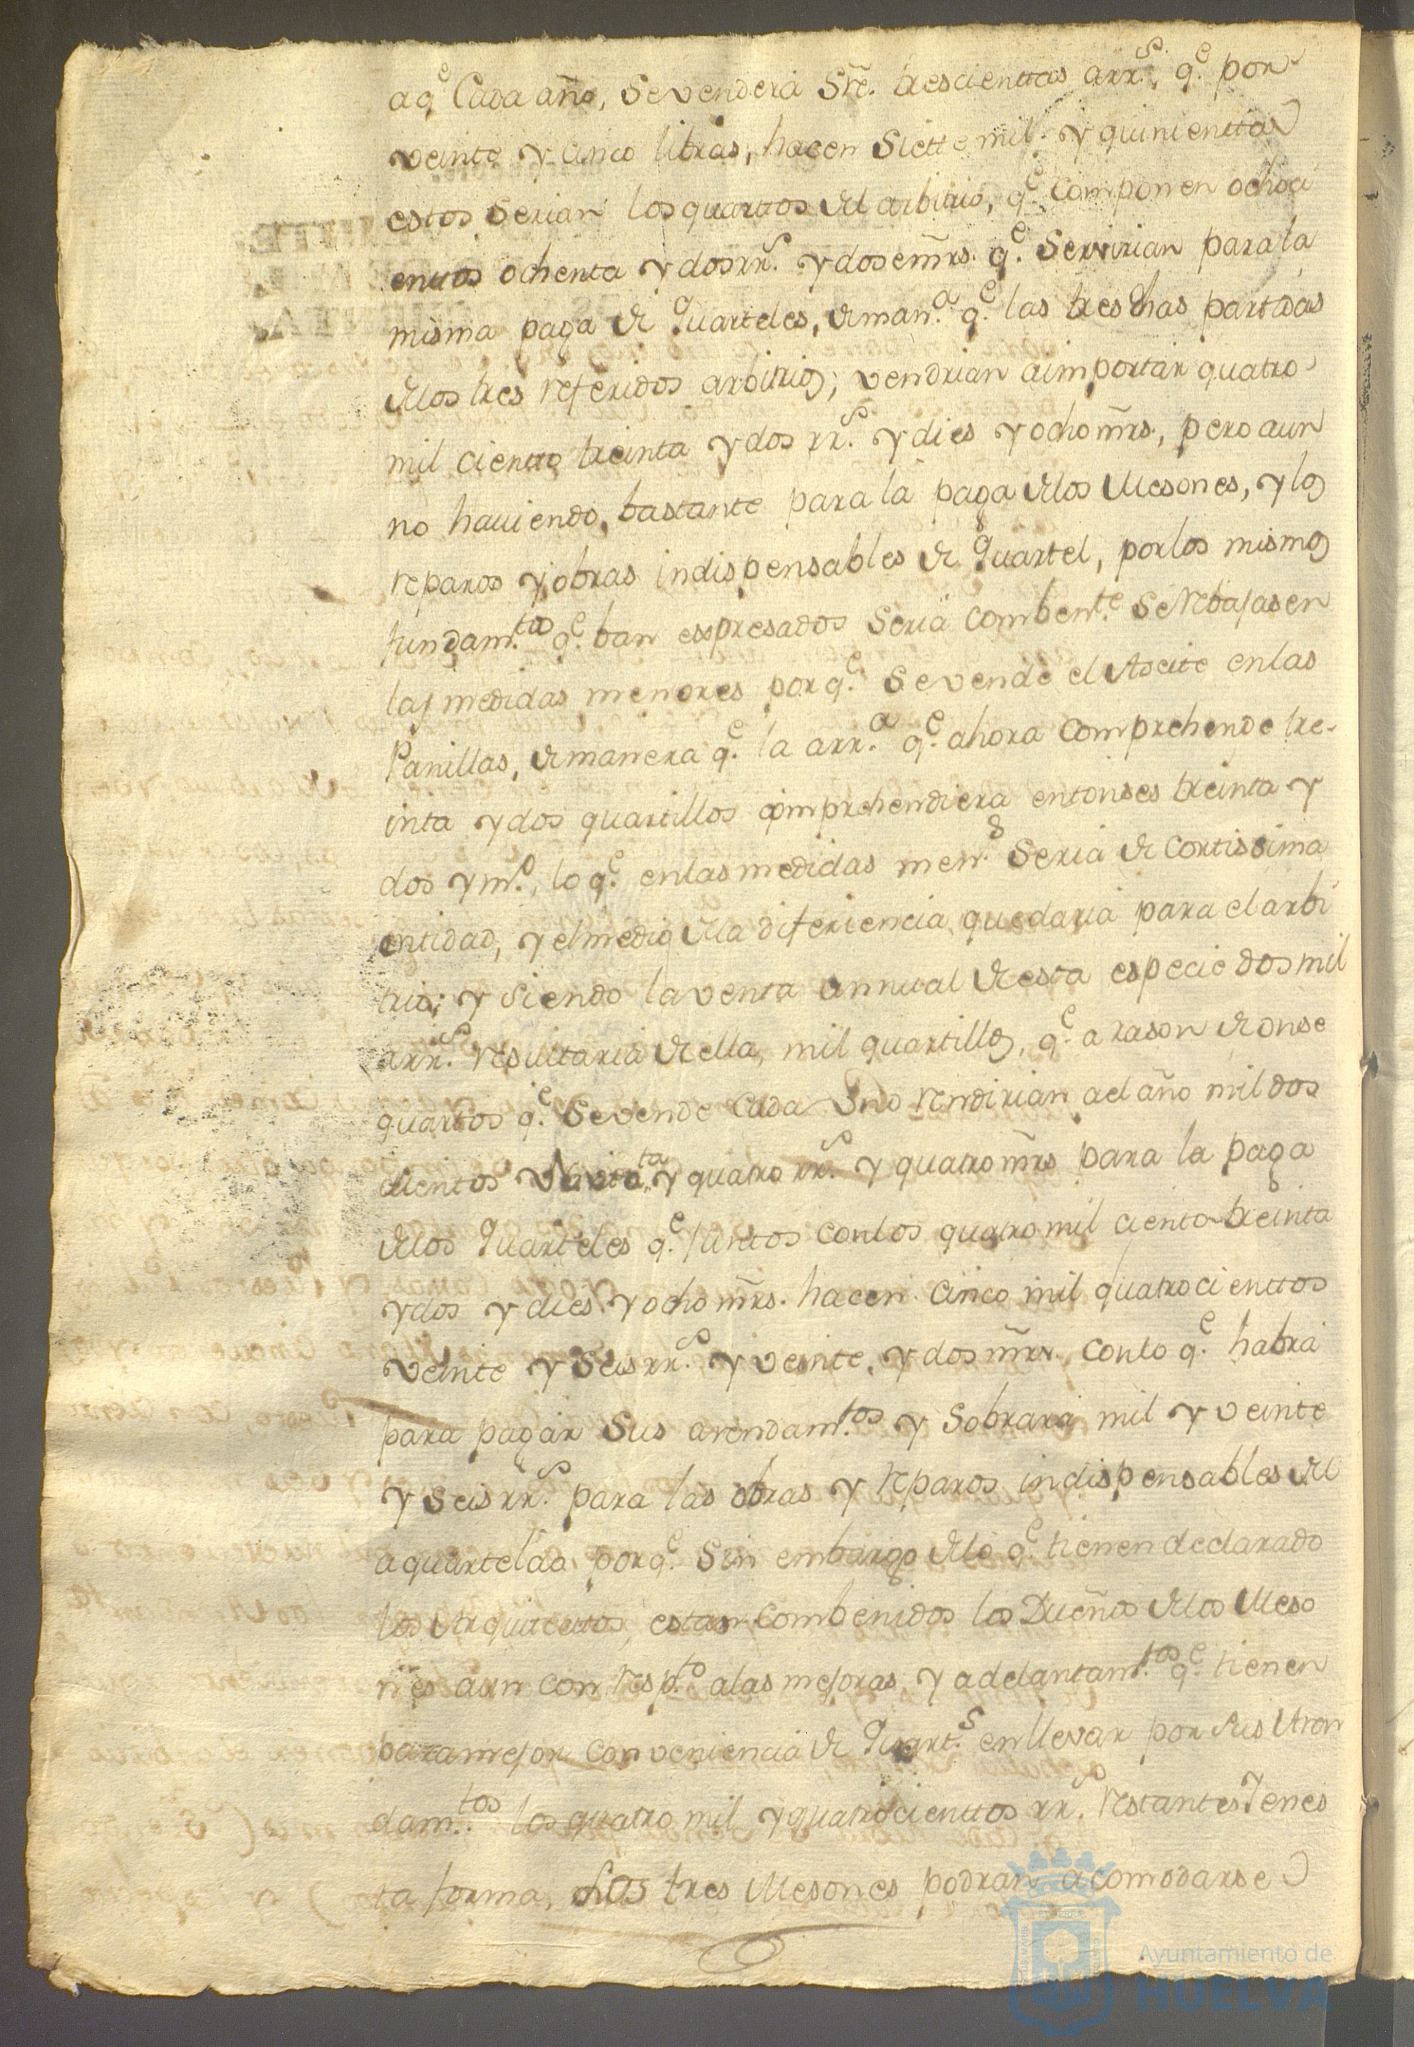 aq.e Cada año, Sevenderà Sre. trescienttas arr.s, q.e por
veinte y cinco libras, hacen Siette mil y quinienttas
estos serian los quarttos del arbitrio, q.e componen ochoci
enttos ochenta y dos rr.s y dose mrs. q.e Servirian parala
misma paga de Quarteles, de man.a q.e las tres dhas partidas
delos tres referidos arbitrios; vendrian aimportar quatro
mil ciento treinta y dos rr.s y dies y ocho mrs, pero aun
no haviendo bastante para la paga delos Mesones, y los
reparos y obras indispensables de Quartel, porlos mismos
fundam.tos q.e ban espresados Seria comben.te Se Rebajasen
las medidas menores porq.e Sevende el Aseite enlas
Panillas, demanera q.e la arr.a q.e ahora Comprehende tre-
inta y dos quartillos comprehendiera entonses treinta y
dos y m.o, lo q.e enlas medidas men.s Seria de cortissima
entidad, y elmedio dela diferiencia quedaria para el arbi
trio; y siendo laventa annual de esta especie dos mil
arr.s resultaria de ella, mil quartillos, q.e a rason de onse
quartos q.e Sevende Cada Uno rendirian al año mil dos
cientos Nov.ta y quatro rr.s y quatro mrs para la paga
delos Quarteles q.e Juntos conlos quatro mil ciento treinta
y dos y dies y ocho mrs. hacen Cinco mil quatrocienttos
veinte y Seis rr.s y veinte y dos mrs, conlo q.e habrà
para pagar Sus arendam.tos y Sobrarà mil y veinte
y Seis rr.s para las obras y Reparos indispensables del
aquarteldo porq.e Sin embargo delo q.e tienen declarado
los Arquitectos, estan combenidos los Dueños delos Meso
nes aun con resp.to alas mejoras y adelantam.tos q.e tienen
paramejor conveniencia de Quart.s enllevar por sus Aren
dam.tos los quatro mil y quatrocienttos rr.s restantes Yenes
ta forma, Los tres Mesones podran acomodarse
Ayuntamiento de
HUELVA